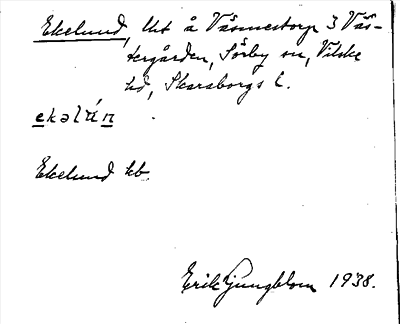 Ekelund, lht å Vännestorp 3 Väs-
tergården, Sörby sn, Vilske
hd, Skaraborgs l.
ekəlún
Ekelund kb.
Erik Ljungblom 1938.